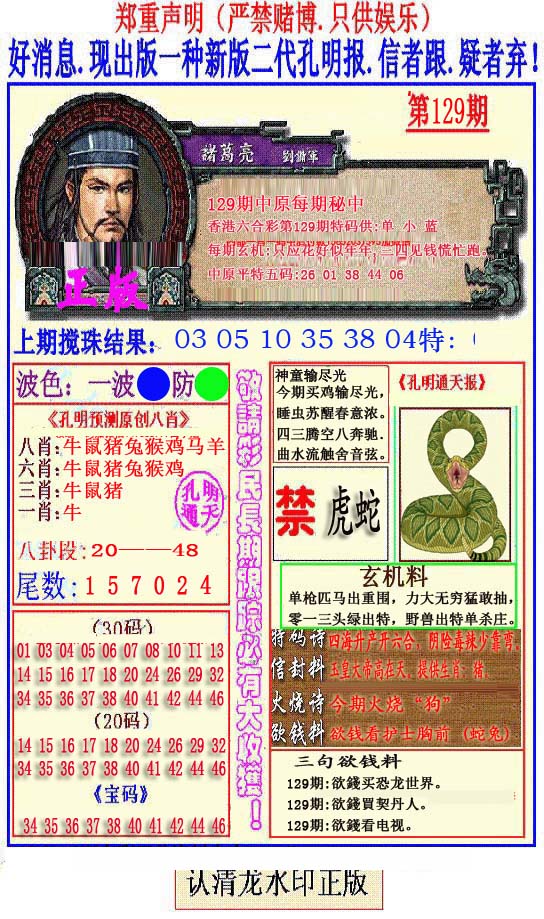 郑重声明（严禁赌博.只供娱乐）
好消息.现出版一种新版二代孔明报.信者跟.疑者弃!
第129期
諸葛亮 劉備軍
129期中原每期秘中
香港六合彩第129期特码供:单 小 蓝
每期玄机:只应花好似年年,三四见钱慌忙跑。
中原平特五码:26 01 38 44 06
正版
上期搅珠结果: 03 05 10 35 38 04特:
波色: 一波 防
《孔明预测原创八肖》
八肖:牛鼠猪兔猴鸡马羊
六肖:牛鼠猪兔猴鸡
三肖:牛鼠猪
一肖:牛
孔明通天
八卦段:20——48
尾数:1 5 7 0 2 4
(30码)
01 03 04 05 06 07 08 10 11 13
14 15 16 17 18 20 24 26 29 32
34 35 36 37 38 40 41 42 44 46
(20码)
14 15 16 17 18 20 24 26 29 32
34 35 36 37 38 40 41 42 44 46
《宝码》
34 35 36 37 38 40 41 42 44 46
敬請彩民長期跟踪必有大收獲!
神童输尽光
今期买鸡输尽光,
睡虫苏醒春意浓。
四三腾空八奔驰.
曲水流触舍音弦。
《孔明通天报》
禁 虎蛇
玄机料
单枪匹马出重围, 力大无穷猛敢抽,
零一三头绿出特, 野兽出特单杀庄。
特码诗 四海升产开六合, 阴险毒辣少靠弯,
信封料 玉皇大帝高在天, 提供生肖: 猪,
火烧诗 今期火烧“狗”
欲钱料 欲钱看护士胸前 (蛇兔)
三句欲钱料
129期:欲錢买恐龙世界。
129期:欲錢買契丹人。
129期:欲錢看电视。
认清龙水印正版